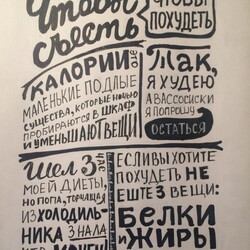 Чтобы
съесть
чтобы
похудеть
Калории это
маленькие подлые
существа, которые ночью
пробираются в шкаф
и уменьшают вещи
Так,
я худею
а вас сосиски
я попрошу
остаться
Шел 3 час
моей диеты,
но попа, торчащая
из холодиль-
ника знала
Если вы хотите
похудеть не
ешьте 3 вещи:
Белки
Жиры